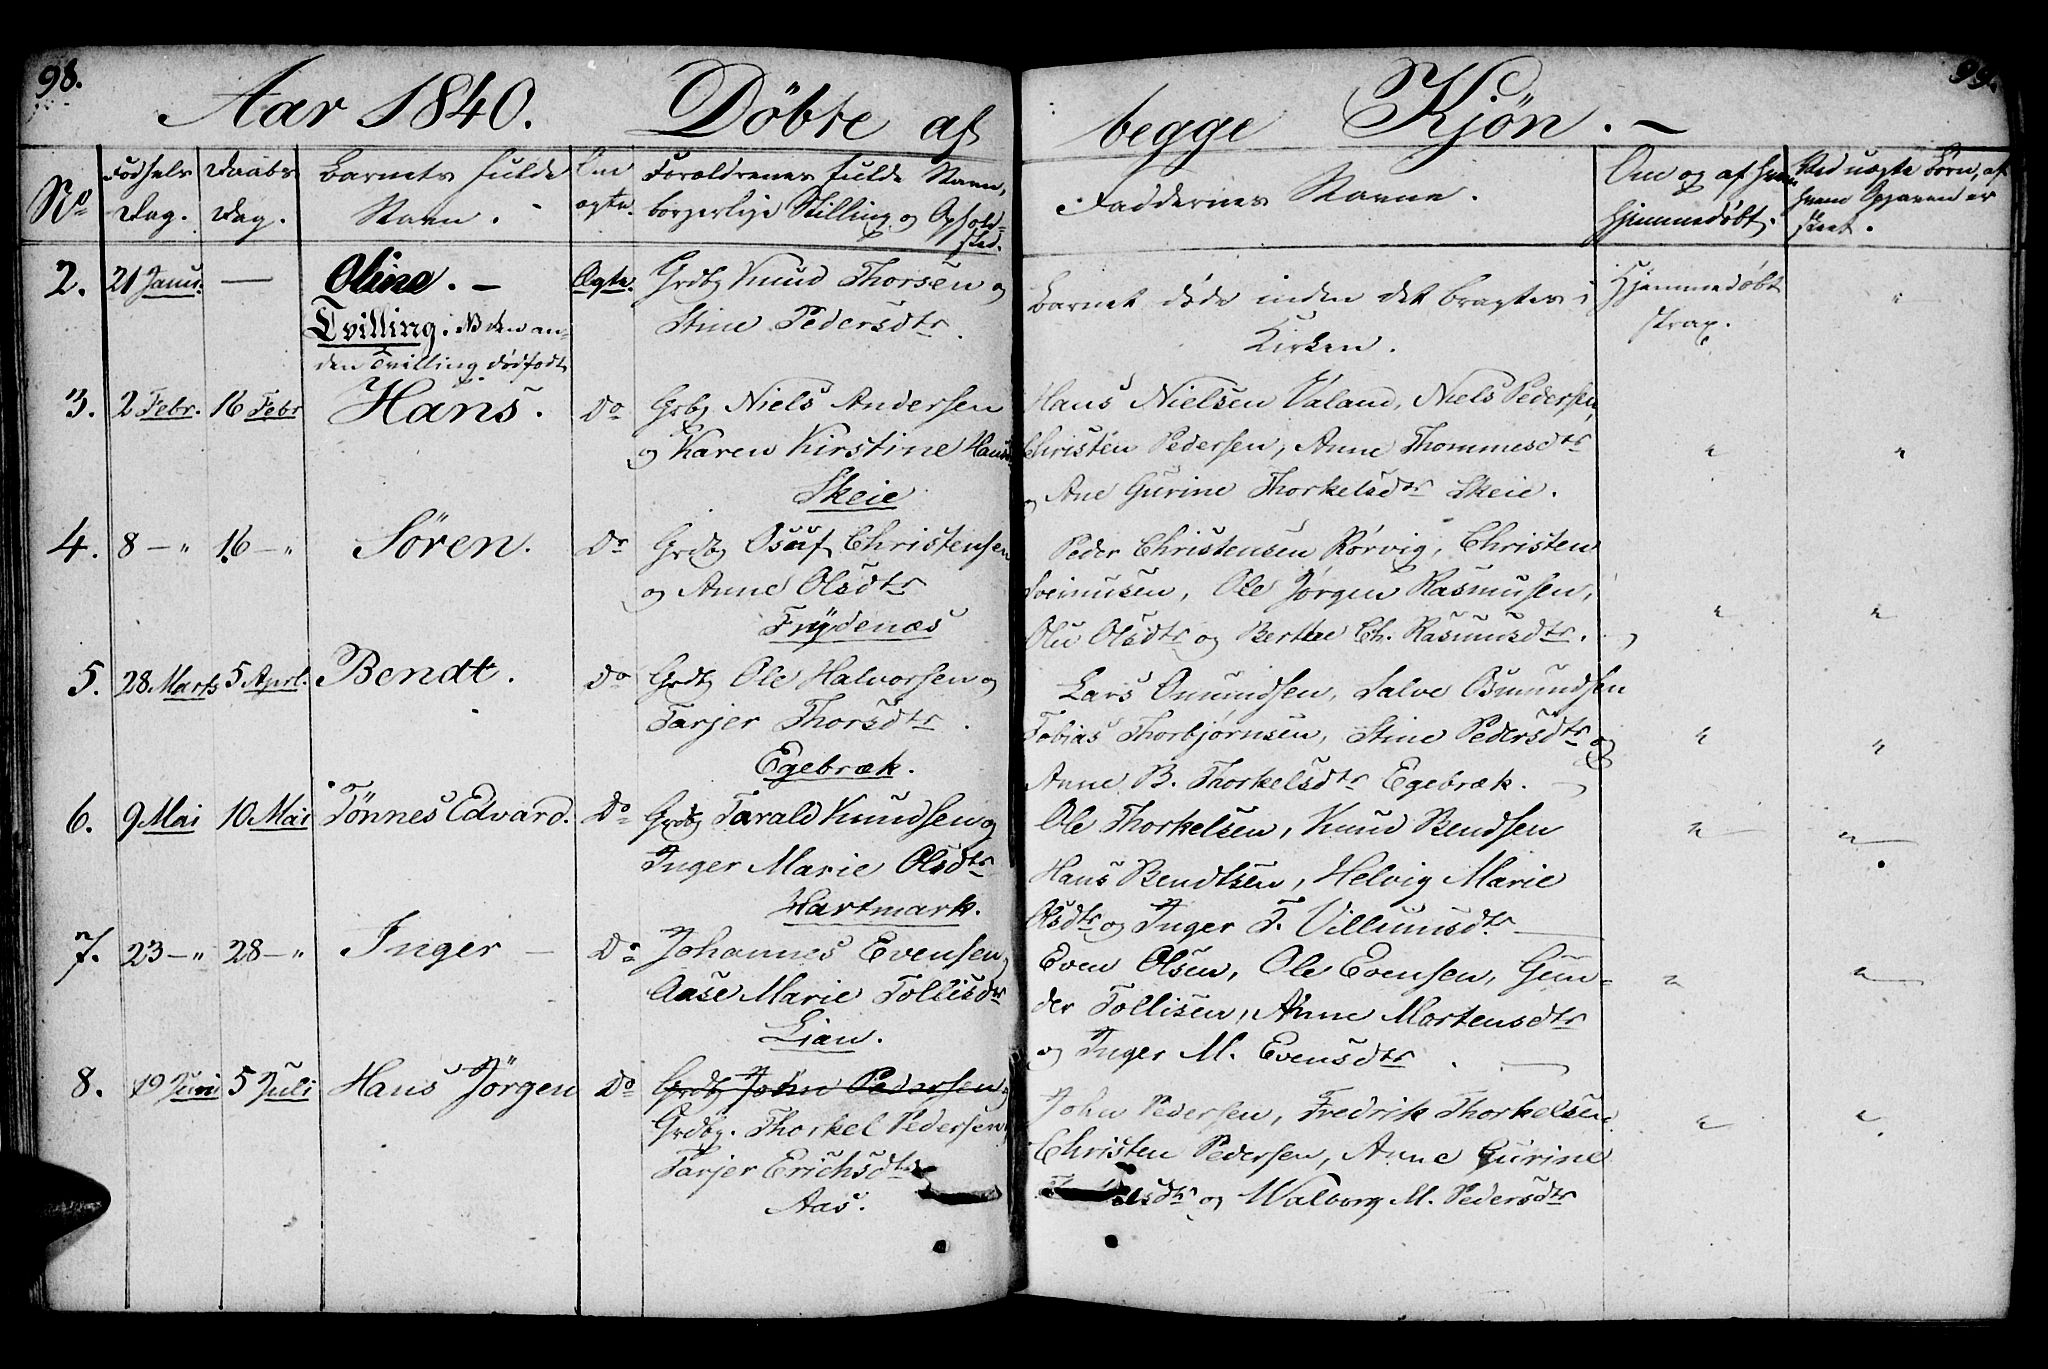 98.
Aar 1840. Döbte af
No Fødsels Dag. Daabs Dag. Barnets fulde Navn. Om ægte. Forældrenes fulde Navn, borgerlige Stilling og Opholdsted.
2. 21 Janu. — Oline. — Ægte. Grdbg Knud Thorsen og
Tvilling. NB den an- Stine Pedersdtr.
den Tvilling dødfødt
3. 2 Febr. 16 Febr Hans. Do Grbg Niels Andersen
og Karen Kirstine Hans
Skeie
4. 8 — " 16 — " Sören. Do Grdbg Osuf Christensen
og Anne Olsdtr
Frydenæs
5. 28 Marts 5 Aprl. Bendt. Do Grdbg Ole Halvorsen og
Tarjer Thorsdtr.
Egebræk.
6. 9 Mai 10 Mai Tönnes Edvard. Do Grdbg Tarald Knudsen og
Inger Marie Olsdtr
Hartmark.
7. 23 — " 28 — " Inger — Do Johannes Evensen,
Aase Marie Tollisdtr
Lian.
8. 19 Juni 5 Juli Hans Jörgen Do Grdbg John Pedersen
Grdbg. Thorkel Pedersen
Tarjer Erichsdtr
Aas.
99.
begge Kjön. —
Faddernes Navne. Om og af hvem hjemmedøbt. Ved uægte Børn, af hvem Opgaven er skeet.
Barnet døde inden det bragtes i Hjemmedøbt "
Kirken. strax.
Hans Nielsen Valand, Niels Pedersen,
Christen Pedersen, Anne Thommesdtr " "
og Ane Gurine Thorkelsdtr Skeie.
Peder Christensen Rörvig, Christen
Ole Jørgen Rasmusen,
Olsdtr og Berthe Ch. Rasmusdtr. " "
Lars Omundsen, Salve Osmundsen
Tobias Thorbjørnsen, Stine Pedersdtr og " "
Anne B. Thorkelsdtr Egebræk. —
Ole Thorkelsen, Knud Bendsen " "
Hans Bendtsen, Helvig Marie
Olsdtr og Inger T. Villumsdtr —
Even Olsen, Ole Evensen, Gun- " "
der Tollisen, Anne Mortensdtr
og Inger M. Evensdtr. —
John Pedersen, Fredrik Thorkelsen " "
Christen Pedersen, Anne Gurine
lsdtr og Walborg M. Pedersdtr